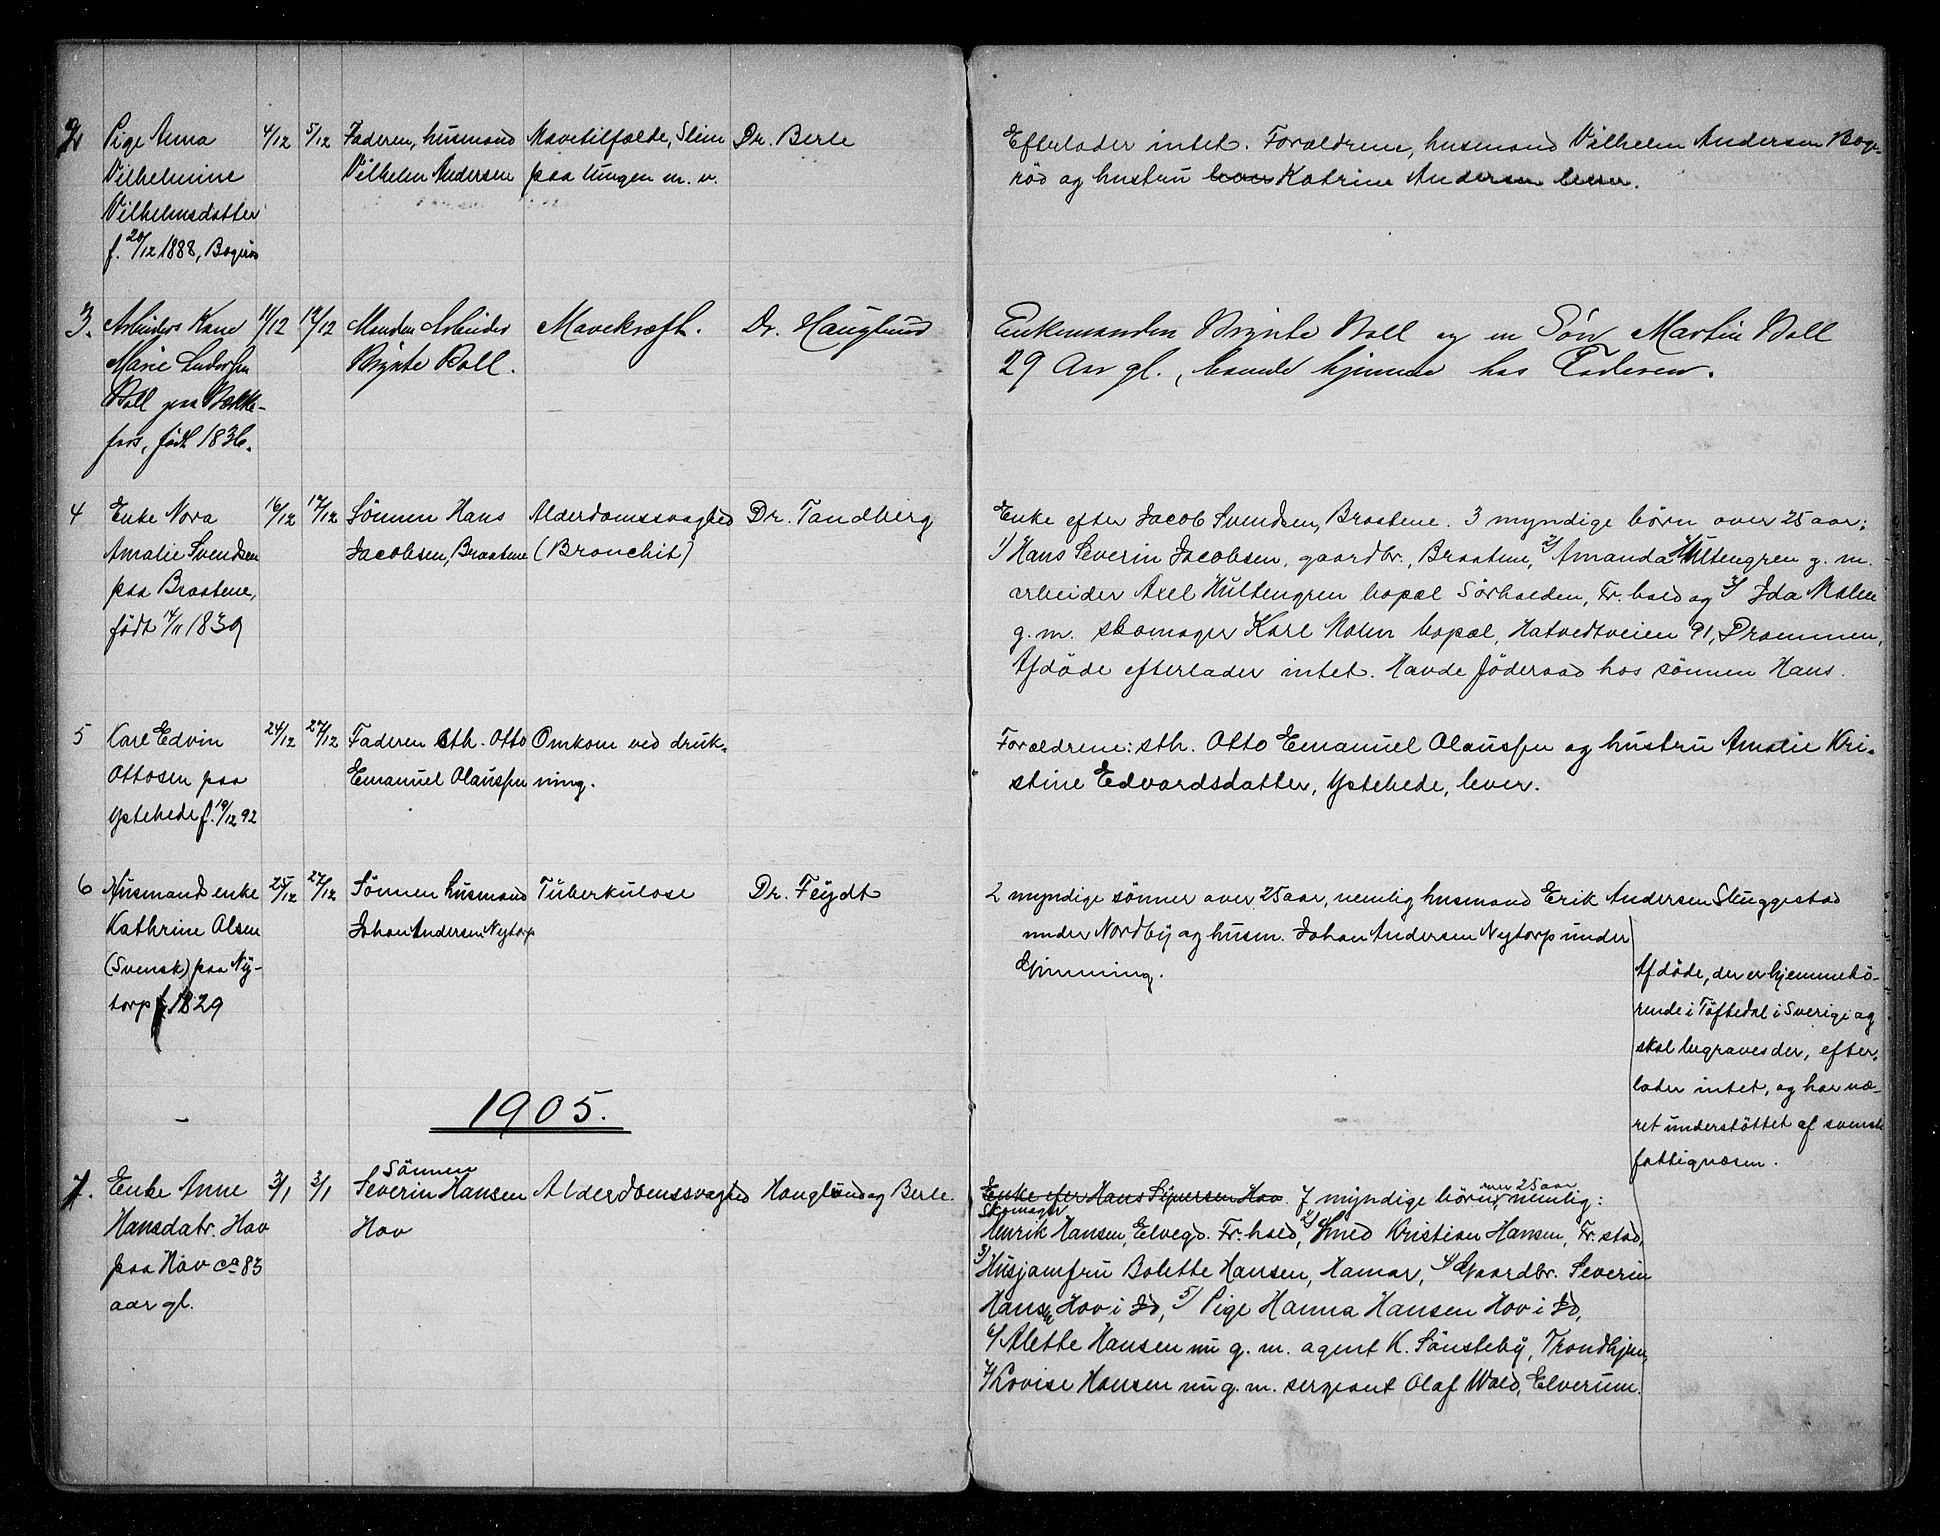 2
Pige Anna
Vilhelmine
Vilhelmsdatter
f. 20/12 1888, Bogerød
4/12
5/12
Faderen, husmand
Vilhelm Andersen
Mavetilfælde, Slim
paa lungen m. v.
Dr. Berle
Efterlader intet. Forældrene, husmand Vilhelm Andersen Bog-
röd og hustru Katrine Andersen lever.
3.
Arbeiders Kone
Marie
Boll paa Bække-
fos, født 1836.
11/12
12/12
Manden Arbeider
Brynte Boll.
Mavekræft.
Dr. Hauglund
Enkemanden Brynte Boll og en Søn Martin Boll
29 Aar gl., boende hjemme hos Faderen.
4
Enke Nora
Amalie Svendsen
paa Braatene,
født 14/11 1839
16/12
17/12
Sönnen Hans
Jacobsen, Braatene
Alderdomssvaghed
(Bronchit)
Dr. Tandberg
Enke efter Jacob Svendsen, Braatene. 3 myndige börn over 25 aar:
1/ Hans Severin Jacobsen, gaardbr., Braatene, 2/ Amanda Hultengren g. m.
arbeider Axel Hultengren bopæl Sörhalden, Fr.hald og 3/ Ida Malm
g. m. skomager Karl Malm bopæl, Hatvedtveien 91, Drammen,
Afdöde efterlader intet. Havde föderaad hos sönnen Hans.
5
Karl Edvin
Ottosen paa
Ystehede f. 19/12 92
24/12
27/12
Faderen sth. Otto
Emanuel Olaussen
Omkom ved druk-
ning.
Forældrene: sth. Otto Emanuel Olaussen og hustru Amalie Kri-
stine Edvardsdatter, Ystehede, lever.
6
Husmandsenke
Kathrine Olsen
(Svensk) paa Ny-
torp f. 1829
25/12
27/12
Sönnen husmand
Johan Andersen Nytorp
Tuberkulose
Dr. Feydt
2 myndige sönner over 25 aar, nemlig husmand Erik Andersen Stuggestad
under Nordby og husm. Johan Andersen Nytorp under
Gimming.
Afdöde, der er hjemmehö-
rende i Töftedal i Sverige og
skal begraves der, efter-
lader intet, og har væ-
ret understöttet af svensk
fattigvæsen.
1905.
7.
Enke Anne
Hansdatr. Hov
paa Hov ca 83
aar gl.
3/1
3/1
Sönnen
Severin Hansen
Hov
Alderdomssvaghed
Hauglund og Berle.
Enke efter Hans Syversen Hov. 7 myndige börn, over 25 aar nemlig:
Skomager
Henrik Hansen, Elvegd. Fr.hald, 2/ Smed Kristian Hansen, Fr.stad,
3/ Husjomfru Bolette Hansen, Hamar, 4/ Gaardbr. Severin
Hansen Hov i Id, 5/ Pige Hanna Hansen Hov i Id,
6/ Alette Hansen nu g. m. agent K. Sönsteby, Trondhjem,
7/ Lovise Hansen nu g. m. sergeant Olaf Wold, Elverum.